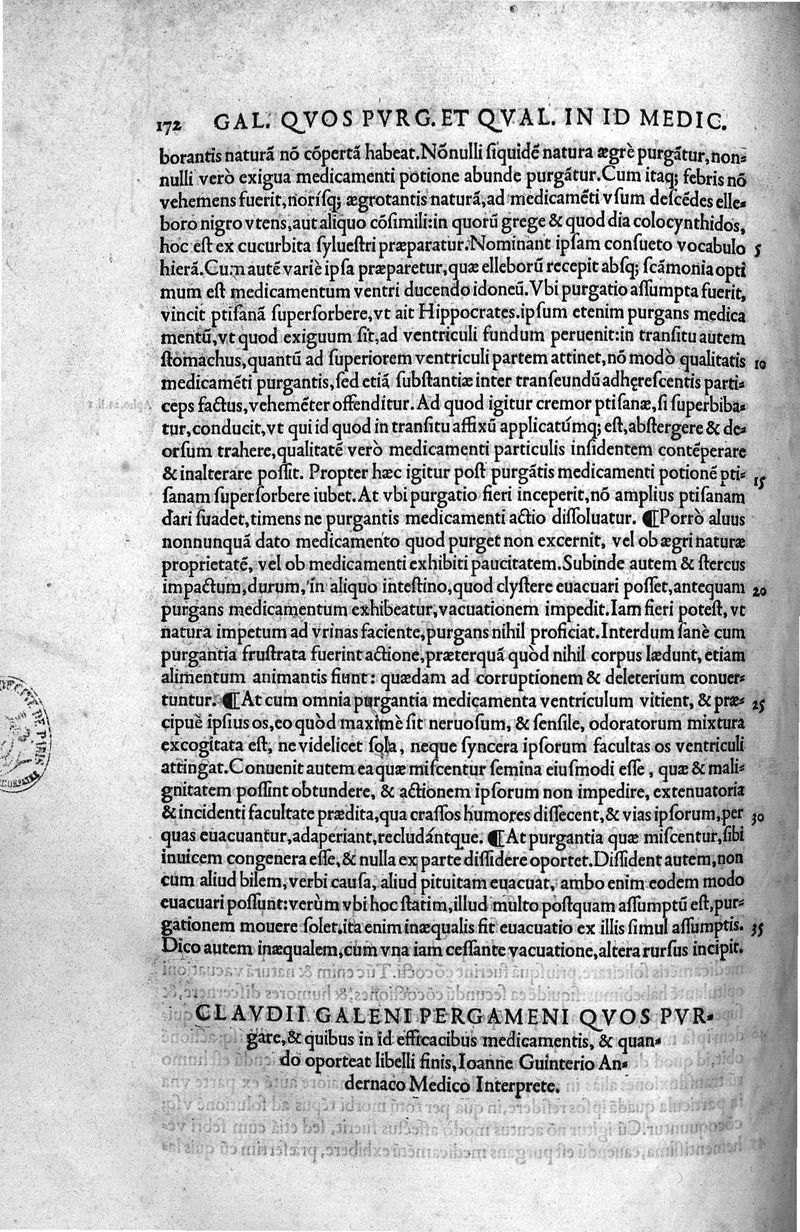 172 GAL. QVOS PVRG. ET QVAL. IN ID MEDIC.
borantis naturã nõ cõpertã habeat. Nõnulli siquidẽ natura ægrè purgãtur, non-
nulli verò exigua medicamenti potione abunde purgãtur. Cum itaq; febris nõ
vehemens fuerit, norísq; ægrotantis naturã, ad medicamẽti vsum descẽdes elle-
boro nigro vtens, aut aliquo cõsimili: in quorũ grege & quod dia colocynthidos,
hoc est ex cucurbita syluestri præparatur. Nominant ipsam consueto vocabulo 5
hierã. Cum autẽ variè ipsa præparetur, quæ elleborũ recepit absq; scãmonia opti
mum est medicamentum ventri ducendo idoneũ. Vbi purgatio assumpta fuerit,
vincit ptisanã supersorbere, vt ait Hippocrates. ipsum etenim purgans medica
mentũ, vt quod exiguum sit, ad ventriculi fundum peruenit: in transitu autem
stomachus, quantũ ad superiorem ventriculi partem attinet, nõ modò qualitatis 10
medicamẽti purgantis, sed etiã substantiæ inter transeundũ adhęrescentis parti-
ceps factus, vehemẽter offenditur. Ad quod igitur cremor ptisanæ, si superbiba-
tur, conducit, vt qui id quod in transitu affixũ applicatúmq; est, abstergere & de-
orsum trahere, qualitatẽ verò medicamenti particulis insidentem contẽperare
& inalterare possit. Propter hæc igitur post purgãtis medicamenti potionẽ pti- 15
sanam supersorbere iubet. At vbi purgatio fieri inceperit, nõ amplius ptisanam
dari suadet, timens ne purgantis medicamenti actio dissoluatur. ¶Porrò aluus
nonnunquã dato medicamento quod purget non excernit, vel ob ægri naturæ
proprietatẽ, vel ob medicamenti exhibiti paucitatem. Subinde autem & stercus
impactum, durum, in aliquo intestino, quod clystere euacuari posset, antequam 20
purgans medicamentum exhibeatur, vacuationem impedit. Iam fieri potest, vt
natura impetum ad vrinas faciente, purgans nihil proficiat. Interdum sanè cum
purgantia frustrata fuerint actione, præterquã quòd nihil corpus lædunt, etiam
alimentum animantis fiunt: quædam ad corruptionem & deleterium conuer-
tuntur. ¶At cum omnia purgantia medicamenta ventriculum vitient, & præ- 25
cipuè ipsius os, eo quòd maximè sit neruosum, & sensile, odoratorum mixtura
excogitata est, ne videlicet sola, neque syncera ipsorum facultas os ventriculi
attingat. Conuenit autem ea quæ miscentur semina eiusmodi esse, quæ & mali-
gnitatem possint obtundere, & actionem ipsorum non impedire, extenuatoria
& incidenti facultate prædita, qua crassos humores dissecent, & vias ipsorum, per 30
quas euacuantur, adaperiant, recludántque. ¶At purgantia quæ miscentur, sibi
inuicem congenera esse, & nulla ex parte dissidere oportet. Dissident autem, non
cum aliud bilem, verbi causa, aliud pituitam euacuat, ambo enim eodem modo
euacuari possunt: verùm vbi hoc statim, illud multo postquam assumptũ est, pur-
gationem mouere solet, ita enim inæqualis fit euacuatio ex illis simul assumptis. 35
Dico autem inæqualem, cum vna iam cessante vacuatione, altera rursus incipit.
CLAVDII GALENI PERGAMENI QVOS PVR-
gare, & quibus in id efficacibus medicamentis, & quan-
do oporteat libelli finis, Ioanne Guinterio An-
dernaco Medico Interprete.